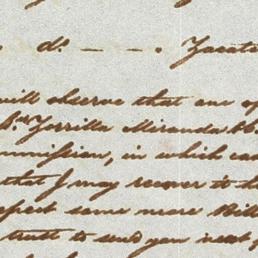 d.º — — . Zacate
will observe that one of
B.ᵈ Zorrilla Miranda &
mmission, in which ca
that I may recover to h
expect some more Bill
trust to send you next